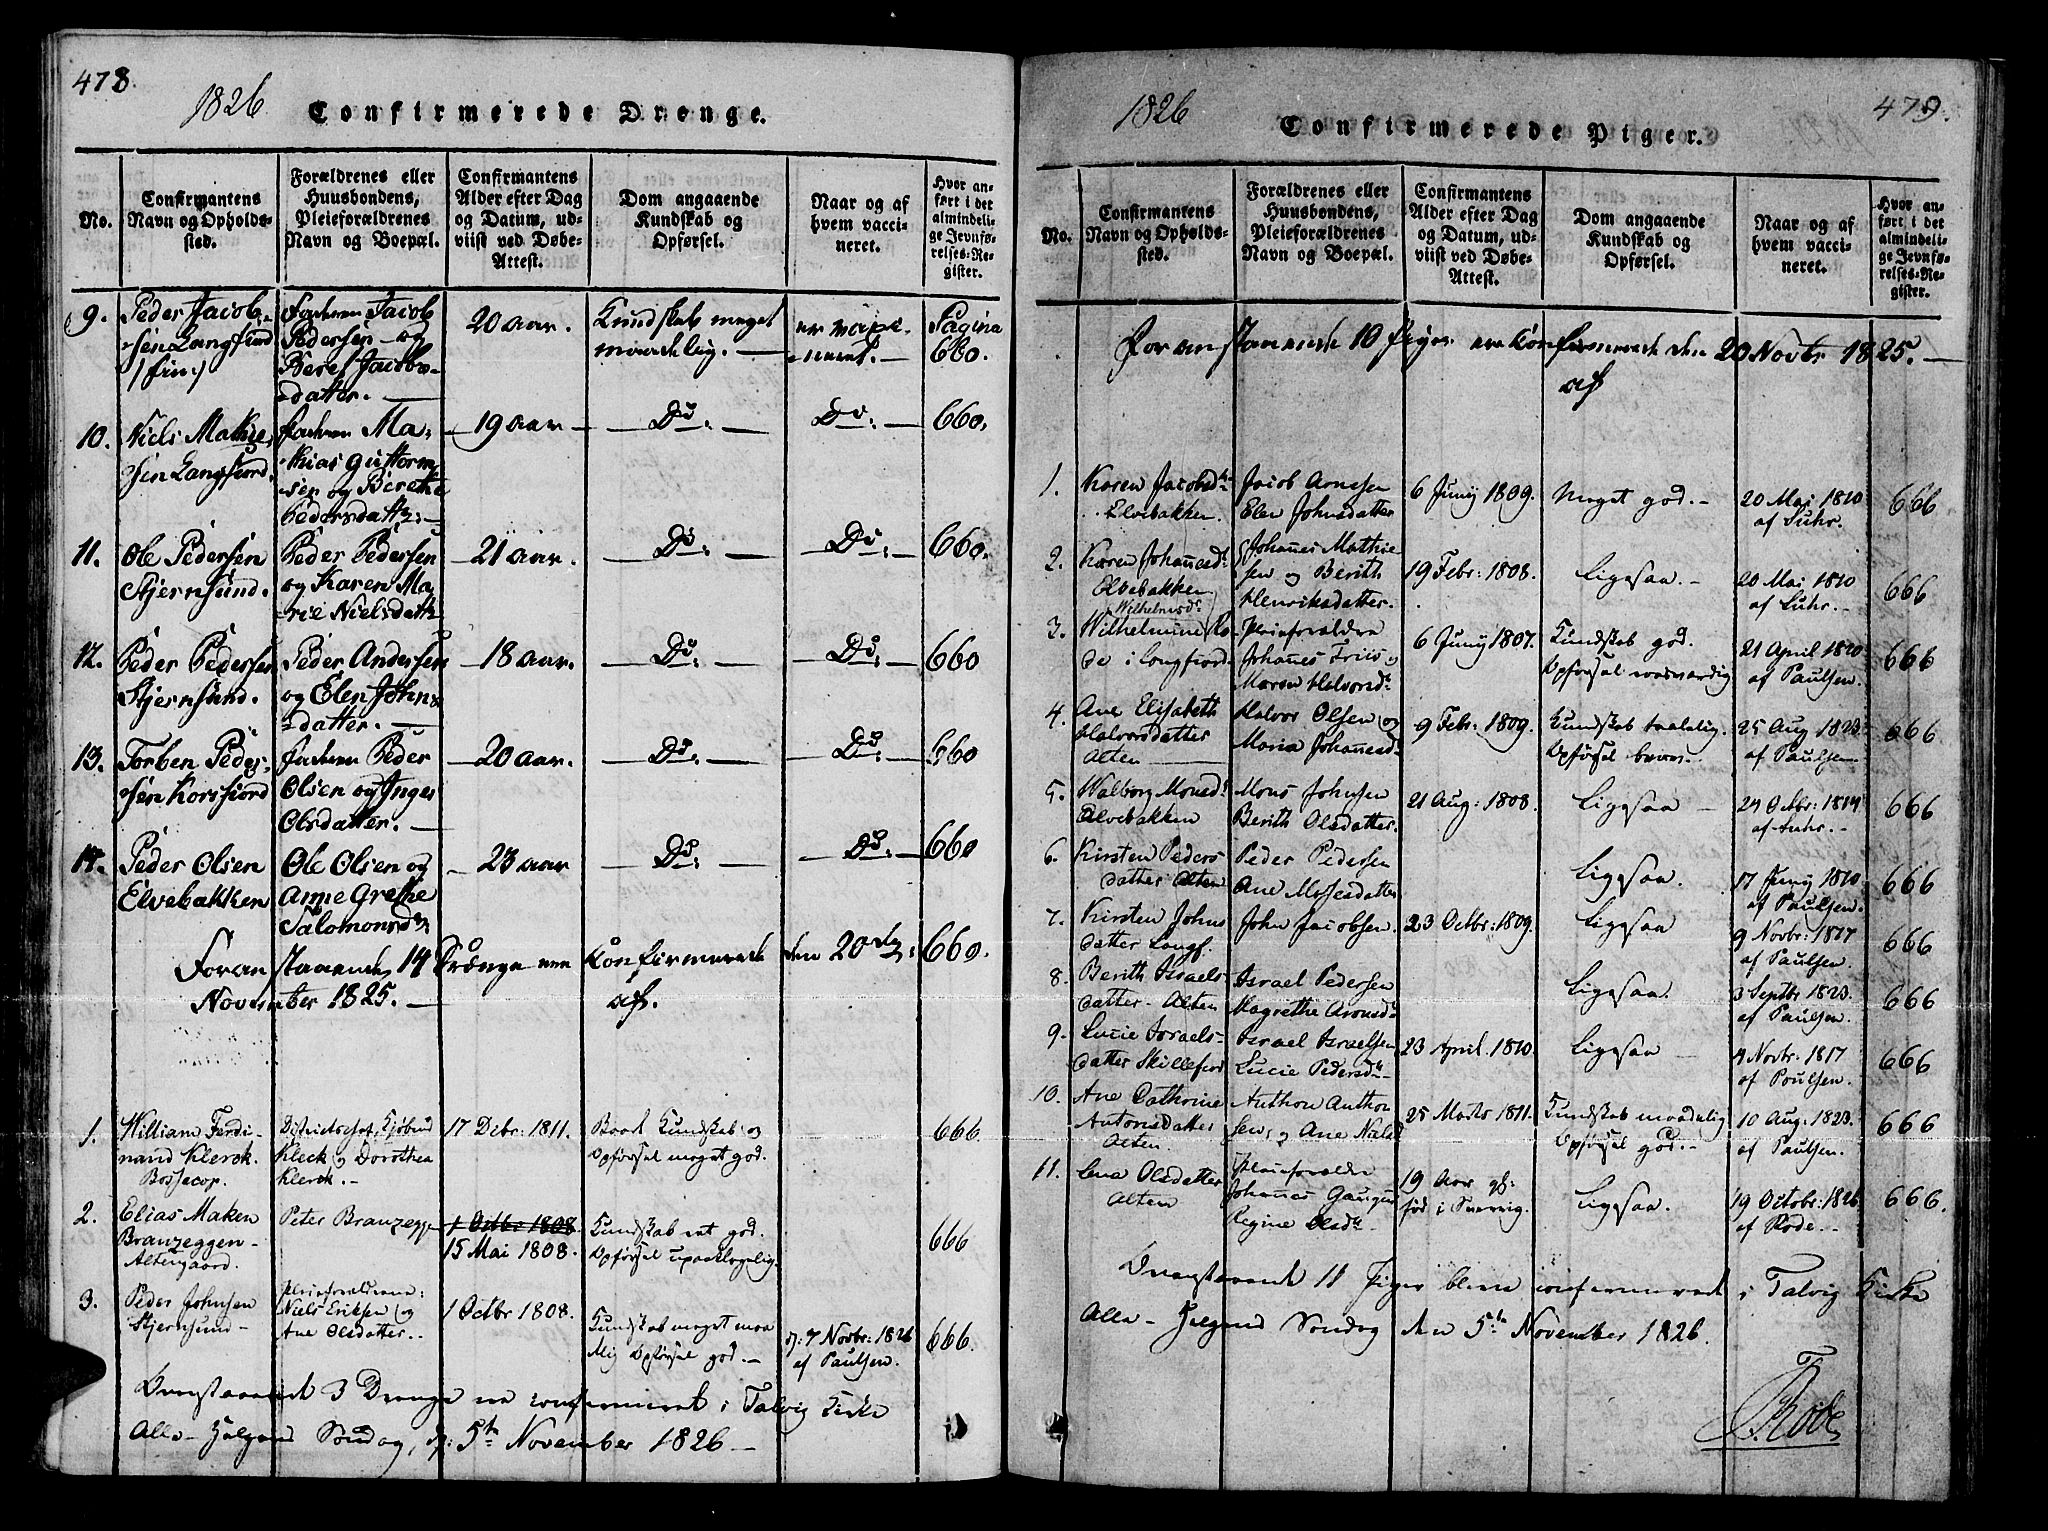 478.
1826
Confirmerede Drenge.
No.
Confirmantens
Navn og Opholds-
sted.
Forældrenes eller
Huusbondens,
Pleieforældrenes
Navn og Boepæl.
Confirmantens
Alder efter Dag
og Datum, ud-
viist ved Døbe-
Attest.
Dom angaaende
Kundskab og
Opførsel.
Naar og af
hvem vacci-
neret.
Hvor an-
ført i det
almindeli-
ge Jevnfø-
relses-Re-
gister.
9. Peder Jacob-
sen Langfiord
Jacob
Pedersen og
Beret Jacobs-
datter.
20 aar.
Kundskab meget
maadelig.
er vaxi-
neret.
Pagina
660.
10. Niels Mathie-
sen Langfiord.
Ma-
thias Guttorm-
sen og Berethe
Pedersdatter
19 aar
Do:
Do:
660.
11. Ole Pedersen
Stjernsund.
Peder Pedersen
og Karen Ma-
rie Nielsdatt
21 aar.
Do:
Do:
660.
12. Peder Pedersen
Stjernsund.
Peder Andersen
og Elen John-
datter.
18 aar.
Do:
Do:
660
13. Torben Peder-
sen Korsfiord
Peder
Olsen og Inger
Olsdatter.
20 aar.
Do:
Do:
660
14. Peder Olsen
Elvebakken
Ole Olsen og
Anne Grethe
Salomonsd
23 aar
Do:
Do:
660
Foranstaaende 14 Drenge ere Confirmerede den 20de
660.
November 1825.
af.
1. William Ferdi-
nand Klerck.
Bossecop.
Klerck og Dorothea
Klerck.
17 Debr: 1811.
Kundskab og
Opførsel meget god.
666.
2. Elias Maken
Branzeggen
Altengaard.
Peter Branzegge
1 Octbr 1808
15 Mai 1808.
Kundskab ret god.
Opførsel upaaklagelig.
666
3. Peder Johnsen
Stjernsund
Pleieforældrene:
Niels Eriksen og
Ane Olsdatter.
1 Octbr 1808.
Kundskab meget maa-
delig Opførsel god.
d: 7 Novbr: 1826
af Paulsen.
666.
Ovenstaaende 3 Drenge ere confirmeret i Talvig Kirke
Alle-Helgens Søndag, d: 5te November 1826
1826
479.
Confirmerede Piger.
No.
Confirmantens
Navn og Opholds-
sted.
Forældrenes eller
Huusbondens,
Pleieforældrenes
Navn og Boepæl.
Confirmantens
Alder efter Dag
og Datum, ud-
viist ved Døbe-
Attest.
Dom angaaende
Kundskab og
Opførsel.
Naar og af
hvem vacci-
neret.
Hvor an-
ført i det
almindeli-
ge Jevnfø-
relses-Re-
gister.
Foranstaaende 10 Piger ere Confirmerede den 20 Novbr 1825.
af
1. Karen Jacobsdr
Elvebakken.
Jacob Arnesen
Elen Johnsdatter
6 Juny 1809.
Meget god.
20 Mai 1810
af Luhr.
666
2. Karen Johannesd
Elvebakken
Johannes Mathie-
sen og Berith
Henriksdatter.
19 Febr: 1808.
Ligesaa.
20 Mai 1810
af Luhr.
666
Wilhelmsdr
3. Wilhelmine Ro-
de i Langfiord.
Pleieforældre
Johannes Friis og
Maren Halvorsdr
6 Juny 1807.
Kundskab god.
Opførsel roesværdig
21 April 1810
af Paulsen.
666
4. Ane Elisabeth
Halvorsdatter
Alten
Halvor Olsen og
Maria Johannesd
9 Febr: 1809.
Kundskab taalelig.
Opførsel
25 Aug 1823.
af Paulsen
666
5. Walborg Monsdr
Elvebakken
Mons Johnsen
Berith Olsdatter.
21 Aug: 1808.
Ligesaa
24 Octbr: 1814
af Luhr.
666
6. Kirsten Peders-
datter Alten
Peder Pedersen
Ane Mosesdatter
Ligesaa.
17 Juny 1810
af Paulsen.
666
7. Kirsten Johns-
datter Langf.
John Jacobsen.
23 Octbr: 1809.
Ligesaa
9 Novbr: 1817
af Paulsen.
666
8. Berith Israels-
datter Alten
Israel Pedersen
Magrethe Aronsdr
Ligesaa.
3 Septbr 1823.
af Paulsen.
666
9. Lucie Israels-
datter Skillefior
Israel Israelsen
Lucie Pedersdr
23 April. 1810.
Ligesaa
4 Novbr: 1817
af Poulsen.
666
10. Ane Cathrine
Antonsdatter
Alten.
Anthon Anthon-
sen, og Ane Niels
25 Marts 1811.
Kundskab maadelig
Opførsel god.
10 Aug: 1823.
af Paulsen.
666
11. Lena Olsdatter
Alten
Pleieforældre
Johannes
Regine Olsdr
19 Aar
fød i
Ligesaa.
19 Octobr: 1826
af Rode.
666.
Ovenstaaende 11 Piger bleve confirmeret i Talvig Kirke
Alle-Helgens Søndag den 5te November 1826.
Rode